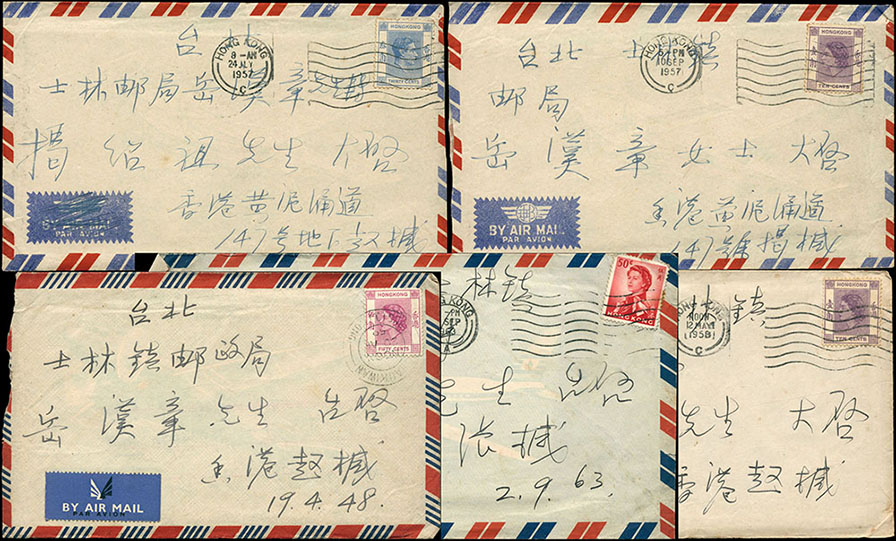 台北
HONG KONG
8-AM
24 JLY
1957
C
HONGKONG
THIRTY CENTS
士林邮局岳漢章先生轉
楊紹祖先生 大啓
BY AIR MAIL
PAR AVION
香港黄泥涌道
147号地下
台北 士林鎮
HONG KONG
6-PM
10 SEP
1957
C
HONGKONG
TEN CENTS
邮局
岳漢章女士大啓
BY AIR MAIL
PAR AVION
香港黄泥涌道
147號楊楲
台北
HONGKONG
FIFTY CENTS
士林鎮邮政局
岳漢章先生 台啓
BY AIR MAIL
香港趙楲
19.4.48.
林鎮
KONG
PM
SEP
A
50¢
HONG KONG
先生 台啓
張楲
2.9.63.
林鎮
HONG KONG
NOON
12 MAY
1958
C
HONGKONG
TEN CENTS
先生 大啓
香港趙楲